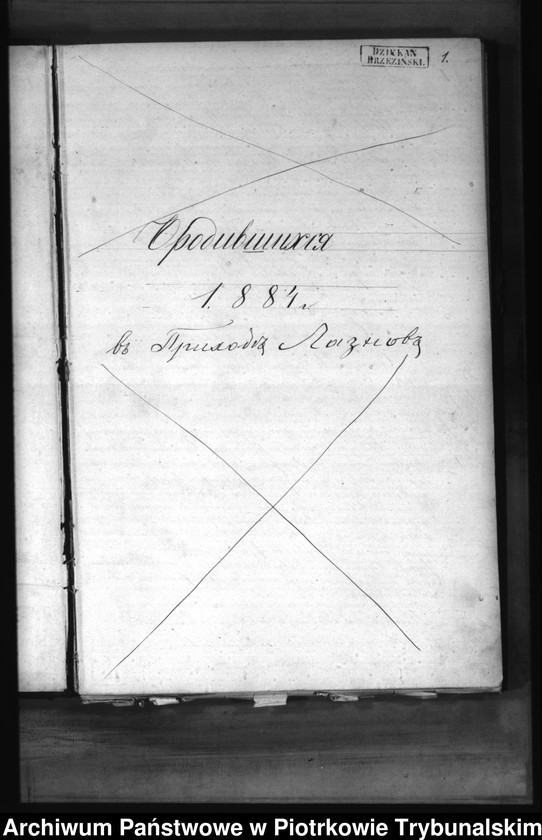 DZIEKAN
BRZEZINSKI.
1.
Уродившихся
1884 г
въ Приходѣ Лазновъ
Archiwum Państwowe w Piotrkowie Trybunalskim